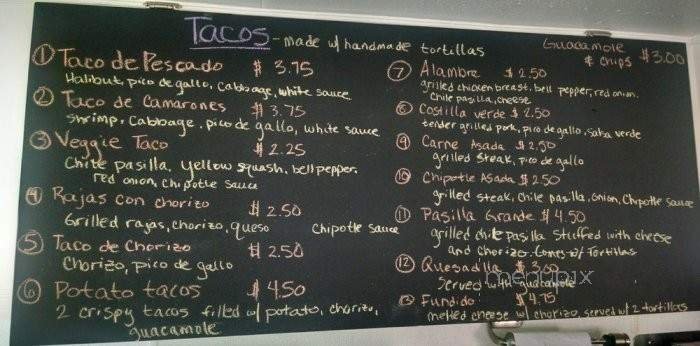 Tacos - made w/ handmade tortillas
Guacamole & chips $3.00
① Taco de Pescado $3.75
Halibut, pico de gallo, Cabbage, white sauce
② Taco de Camarones $3.75
Shrimp, Cabbage, pico de gallo, white sauce
③ Veggie Taco $2.25
Chile pasilla, yellow squash, bell pepper,
red onion, chipotle sauce
④ Rajas con chorizo $2.50
Grilled rajas, chorizo, queso Chipotle sauce
⑤ Taco de Chorizo $2.50
Chorizo, pico de gallo
⑥ Potato tacos $4.50
2 crispy tacos filled w/ potato, chorizo,
guacamole
⑦ Alambre $2.50
grilled chicken breast, bell pepper, red onion,
chile pasilla, cheese
⑧ Costilla verde $2.50
tender grilled pork, pico de gallo, salsa verde
⑨ Carne Asada $2.50
grilled steak, pico de gallo
⑩ Chipotle Asada $2.50
grilled steak, chile pasilla, onion, Chipotle sauce
⑪ Pasilla Grande $4.50
grilled chile pasilla Stuffed with cheese
and chorizo. Comes w/ Tortillas
⑫ Quesadilla $3.00
Served with guacamole
⑬ Fundido $4.75
melted cheese w/ chorizo, served w/ 2 tortillas
menupix